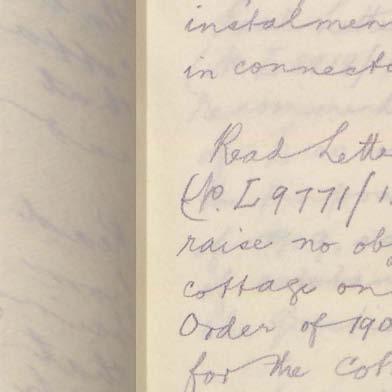 instalmen
in connect
Read Lette
(P. L 9771/1
raise no ob
cottage on
Order of 190
for the Cot